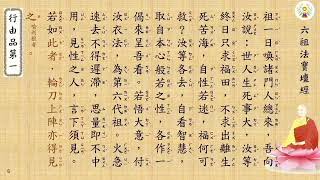 六祖法寶壇經
祖一日喚諸門人總來。吾向
汝說:世人生死事大,汝等
終日只求福田,不求出離生
死苦海,自性若迷,福何可
救?汝等各去,自看智慧,
取自本心般若之性,各作一
偈來呈吾看。若悟大意,付
汝衣法,為第六代祖。火急
速去,不得遲滯。思量即不中
用,見性之人,言下須見。
若如此者,輪刀上陣,亦得見
之。
行由品第一